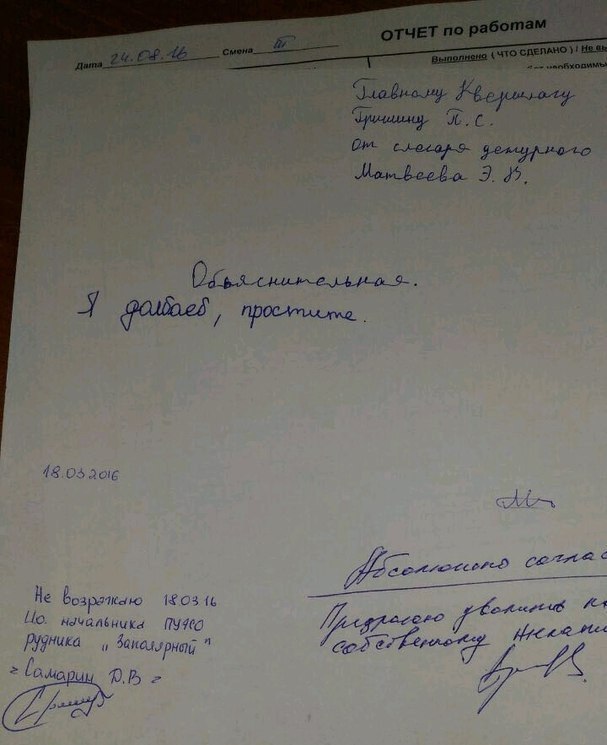 ОТЧЕТ по работам
Дата 24.08.16 Смена III
Выполнено ( ЧТО СДЕЛАНО ) / Не вы
необходимы
Главному Квершлагу
Гришину П.С.
от слесаря дежурного
Матвеева Э.В.
Объяснительная.
Я долбаеб, простите.
18.03.2016
Абсолютно соглас
Предлагаю уволить по
собственному желани
Не возражаю 18.03.16
И.о. начальника
рудника "Заполярный"
Самарин Д.В